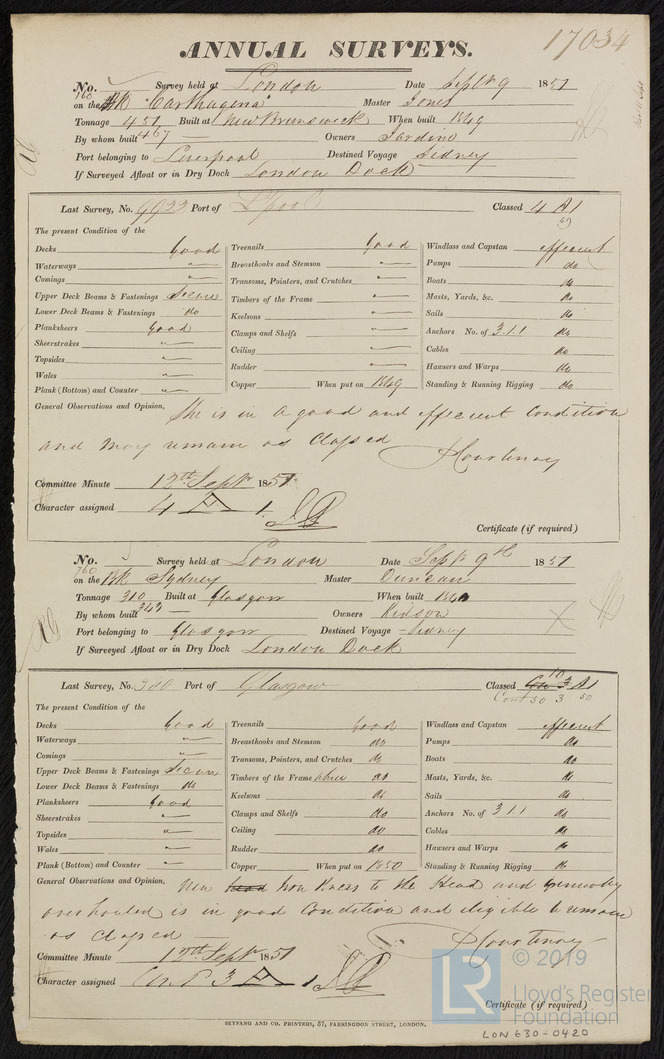 17034
ANNUAL SURVEYS.
No. Survey held at London Date Sept 9 1851
760
on the Bk "Carthagena" Master Jones
Tonnage 451 Built at New Brunswick When built 1849
467
By whom built Owners Jardine
Port belonging to Liverpool Destined Voyage Sidney
If Surveyed Afloat or in Dry Dock London Dock
Last Survey, No. 9923 Port of L'pool Classed 4 A1
49
The present Condition of the
Decks Good Treenails Good Windlass and Capstan effecient
Waterways " Breasthooks and Stemson " Pumps do
Comings " Transoms, Pointers, and Crutches " Boats do
Upper Deck Beams & Fastenings Secure Timbers of the Frame " Masts, Yards, &c. do
Lower Deck Beams & Fastenings do Keelsons " Sails do
Planksheers Good Clamps and Shelfs " Anchors No. of 3.1.1 do
Sheerstrakes " Ceiling " Cables do
Topsides " Rudder " Hawsers and Warps do
Wales " Copper When put on 1849 Standing & Running Rigging do
Plank (Bottom) and Counter "
General Observations and Opinion, She is in a good and effecient Condition
and may remain as Classed
P Courtenay
Committee Minute 12th Septr 1851
Character assigned 4 A 1.
Certificate (if required)
No. Survey held at London Date Sept 9th 1851
760
on the Bk Sydney Master Duncan
Tonnage 310 Built at Glasgow When built 1840
342
By whom built Owners Kidson
Port belonging to Glasgow Destined Voyage Sidney
If Surveyed Afloat or in Dry Dock London Dock
Last Survey, No. 380 Port of Glasgow Classed 10 A1
Cont 50 3 50
The present Condition of the
Decks Good Treenails Good Windlass and Capstan effecient
Waterways " Breasthooks and Stemson do Pumps do
Comings " Transoms, Pointers, and Crutches do Boats do
Upper Deck Beams & Fastenings Secure Timbers of the Frame do Masts, Yards, &c. do
Lower Deck Beams & Fastenings do Keelsons do Sails do
Planksheers Good Clamps and Shelfs do Anchors No. of 3.1.1 do
Sheerstrakes " Ceiling do Cables do
Topsides " Rudder do Hawsers and Warps do
Wales " Copper When put on 1850 Standing & Running Rigging do
Plank (Bottom) and Counter "
General Observations and Opinion, New Iron Knees to the Head and generally
overhauled is in good Condition and eligible to remain
as Classed
P Courtenay
Committee Minute 12th Septr 1851
Character assigned Cont 3 A 1
Certificate (if required)
SEYFANG AND CO. PRINTERS, 57, FARRINGDON STREET, LONDON.
LR © 2019
Lloyd's Register
Foundation
LON 630-0420